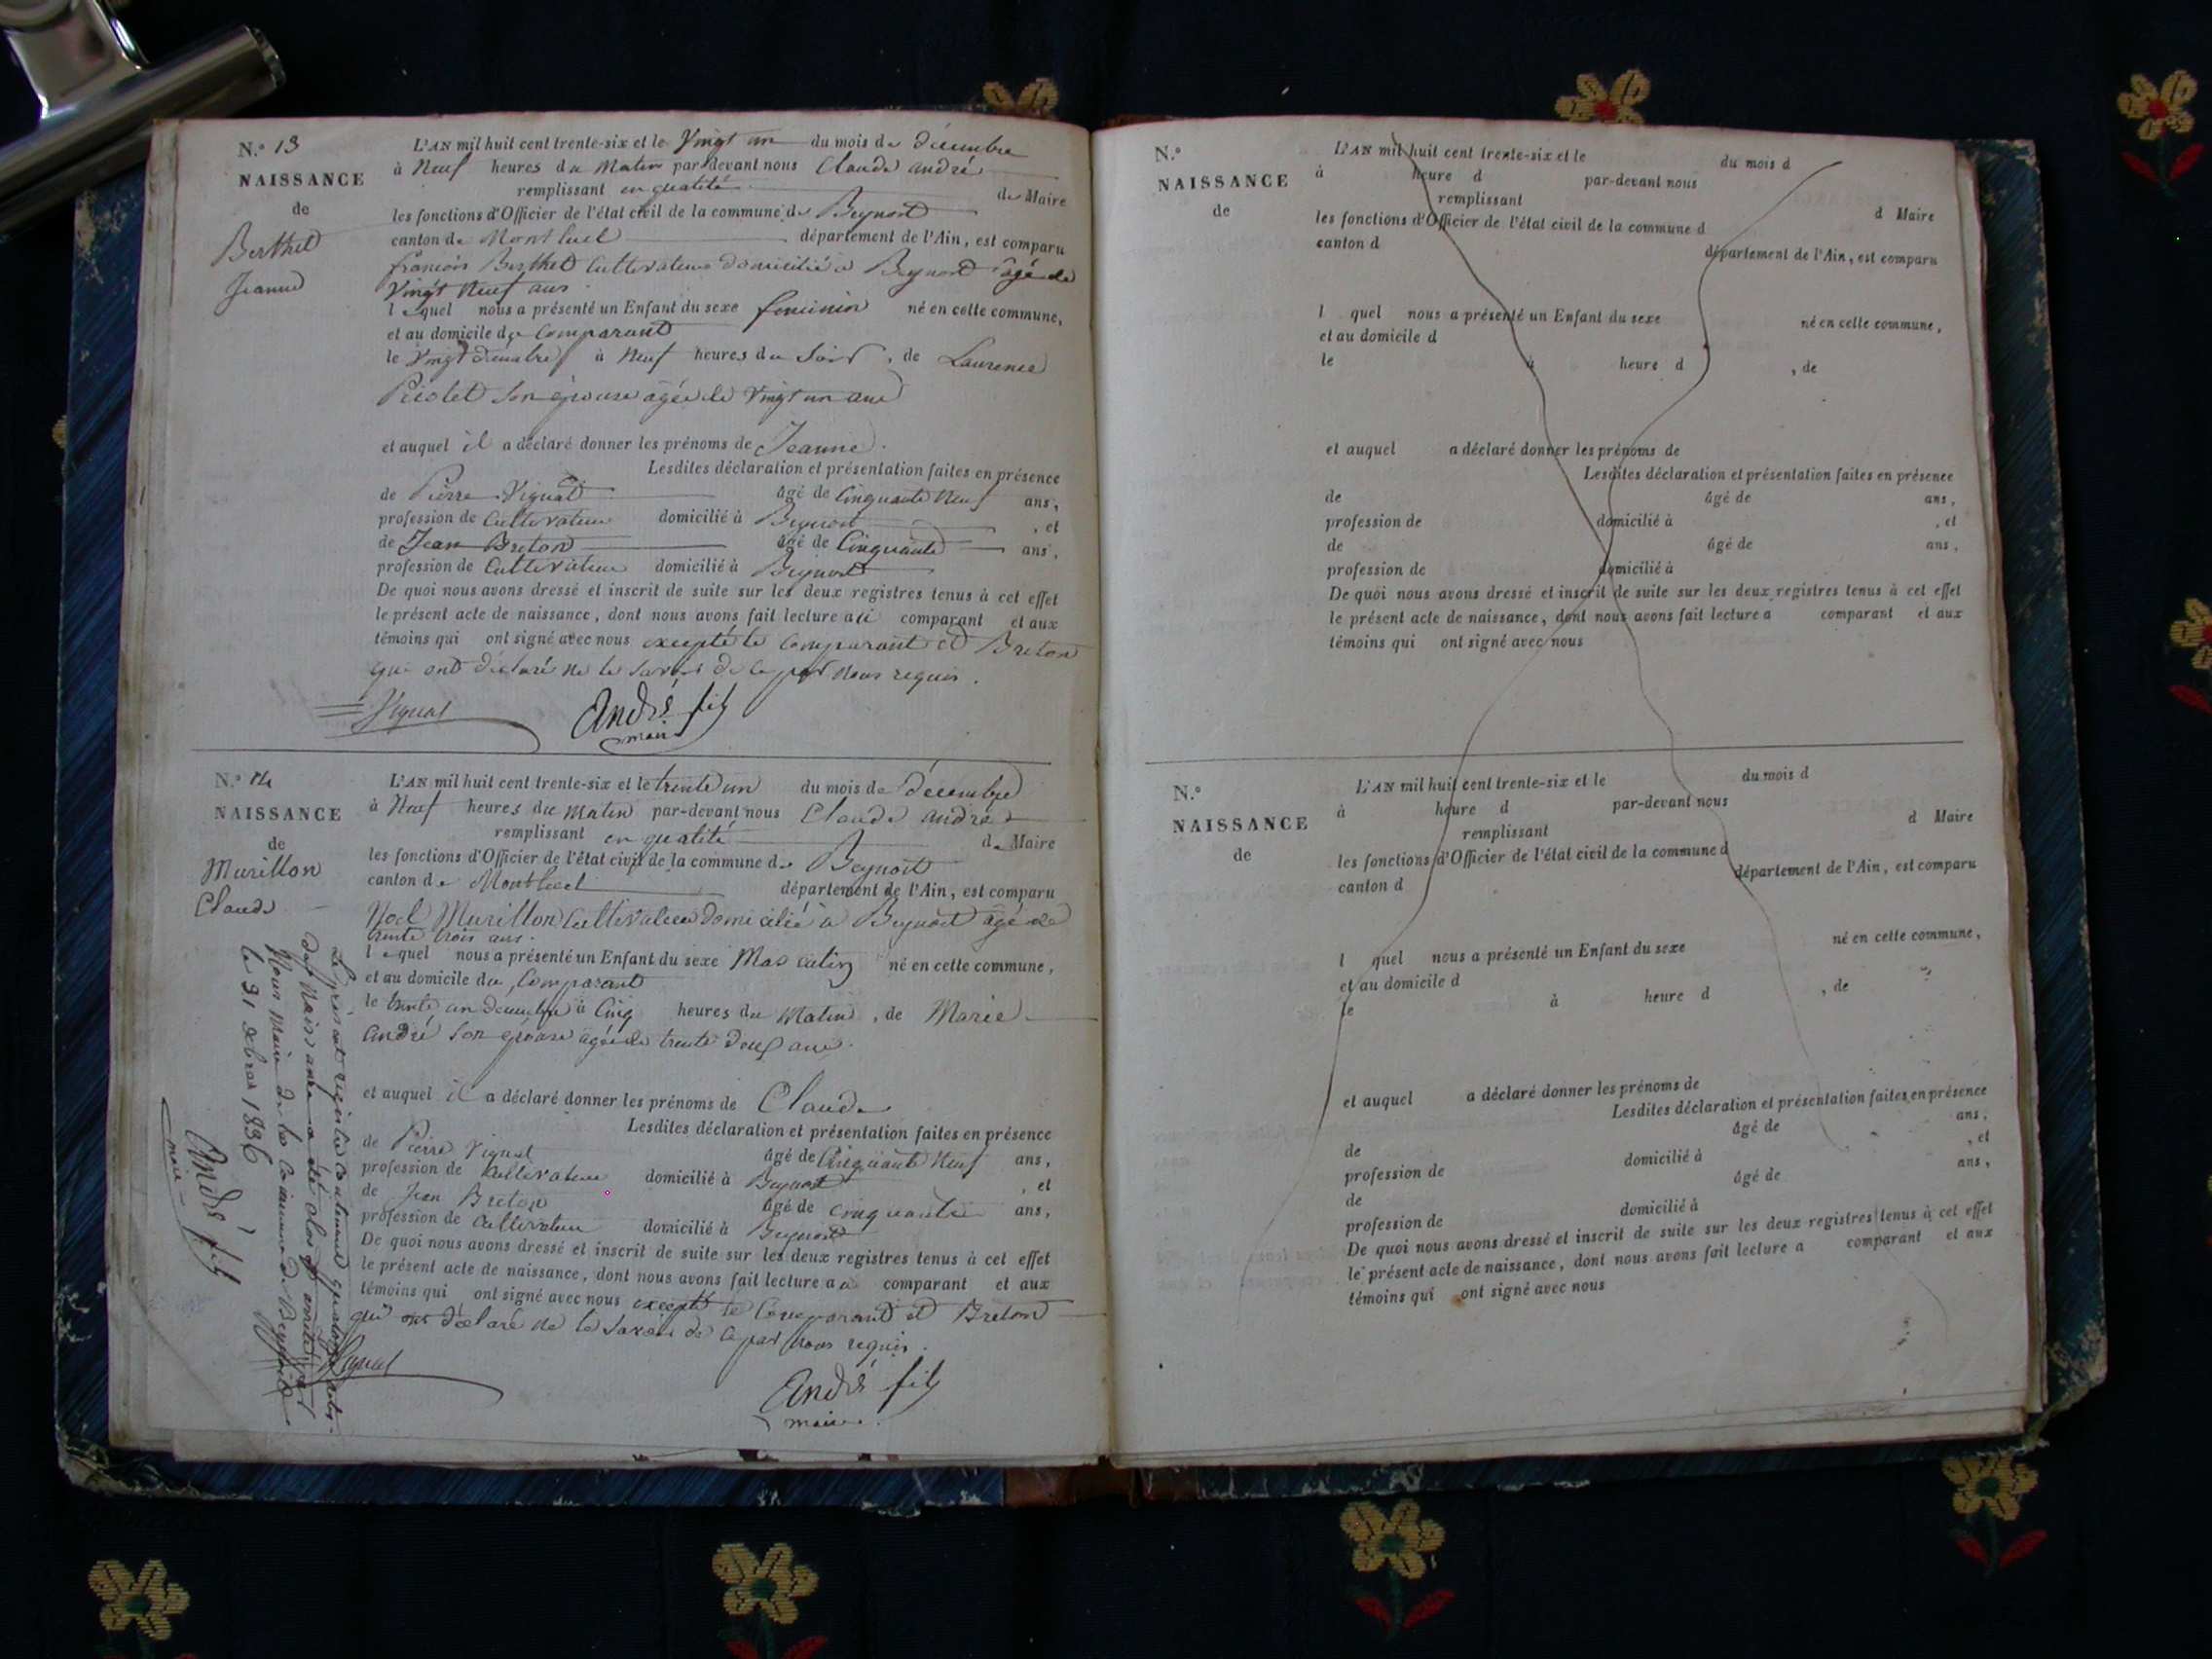 N.° 13
NAISSANCE
de
Berthet
Jeanne
L'AN mil huit cent trente-six et le Vingt un du mois de décembre
à Neuf heures du Matin par-devant nous Claude andré
remplissant en qualité de Maire
les fonctions d'Officier de l'état civil de la commune de Beynost
canton de Montluel département de l'Ain, est comparu
françois Berthet Cultivateur domicilié à Beynost âgé de
Vingt Neuf ans.
lequel nous a présenté un Enfant du sexe feminin né en cette commune,
et au domicile du Comparant
le Vingt décembre à Neuf heures du Soir, de Laurence
son épouse âgée de Vingt un ans
et auquel il a déclaré donner les prénoms de Jeanne.
Lesdites déclaration et présentation faites en présence
de Pierre Vignat âgé de Cinquante Neuf ans,
profession de Cultivateur domicilié à Beynost, et
de Jean Breton âgé de Cinquante ans,
profession de Cultivateur domicilié à Beynost
De quoi nous avons dressé et inscrit de suite sur les deux registres tenus à cet effet
le présent acte de naissance, dont nous avons fait lecture au comparant et aux
témoins qui ont signé avec nous excepté le Comparant et Breton
qui ont déclaré ne le Savoir de ce par Nous requis.
Vignat
André fils
maire
N.° 14
NAISSANCE
de
Murillon
Claude
L'AN mil huit cent trente-six et le trente un du mois de décembre
à Neuf heures du Matin par-devant nous Claude andré
remplissant en qualité de Maire
les fonctions d'Officier de l'état civil de la commune de Beynost
canton de Montluel département de l'Ain, est comparu
Murillon Cultivateur domicilié à Beynost âgé de
trente trois ans.
lequel nous a présenté un Enfant du sexe Masculin né en cette commune,
et au domicile du Comparant
le trente un décembre à Cinq heures du Matin, de Marie
André Son épouse âgée de trente deux ans.
et auquel il a déclaré donner les prénoms de Claude
Lesdites déclaration et présentation faites en présence
de Pierre Vignat âgé de Cinquante Neuf ans,
profession de Cultivateur domicilié à Beynost, et
de Jean Breton âgé de cinquante ans,
profession de Cultivateur domicilié à Beynost
De quoi nous avons dressé et inscrit de suite sur les deux registres tenus à cet effet
le présent acte de naissance, dont nous avons fait lecture au comparant et aux
témoins qui ont signé avec nous excepté le Comparant et Breton
qui ont déclaré ne le Savoir de ce par Nous requis.
Vignat
André fils
maire
Le présent registre contenant quatorze actes
de Naissance a été clos et arrêté par
Nous Maire de la Commune de Beynost
le 31 Xbre 1836
André fils
maire
N.°
NAISSANCE
de
L'AN mil huit cent trente-six et le du mois d
à heure d par-devant nous
remplissant d Maire
les fonctions d'Officier de l'état civil de la commune d
canton d département de l'Ain, est comparu
l quel nous a présenté un Enfant du sexe né en cette commune,
et au domicile d
le à heure d , de
et auquel a déclaré donner les prénoms de
Lesdites déclaration et présentation faites en présence
de âgé de ans,
profession de domicilié à , et
de âgé de ans,
profession de domicilié à
De quoi nous avons dressé et inscrit de suite sur les deux registres tenus à cet effet
le présent acte de naissance, dont nous avons fait lecture a comparant et aux
témoins qui ont signé avec nous
N.°
NAISSANCE
de
L'AN mil huit cent trente-six et le du mois d
à heure d par-devant nous
remplissant d Maire
les fonctions d'Officier de l'état civil de la commune d
canton d département de l'Ain, est comparu
l quel nous a présenté un Enfant du sexe né en cette commune,
et au domicile d
le à heure d , de
et auquel a déclaré donner les prénoms de
Lesdites déclaration et présentation faites en présence
de âgé de ans,
profession de domicilié à , et
de âgé de ans,
profession de domicilié à
De quoi nous avons dressé et inscrit de suite sur les deux registres tenus à cet effet
le présent acte de naissance, dont nous avons fait lecture a comparant et aux
témoins qui ont signé avec nous